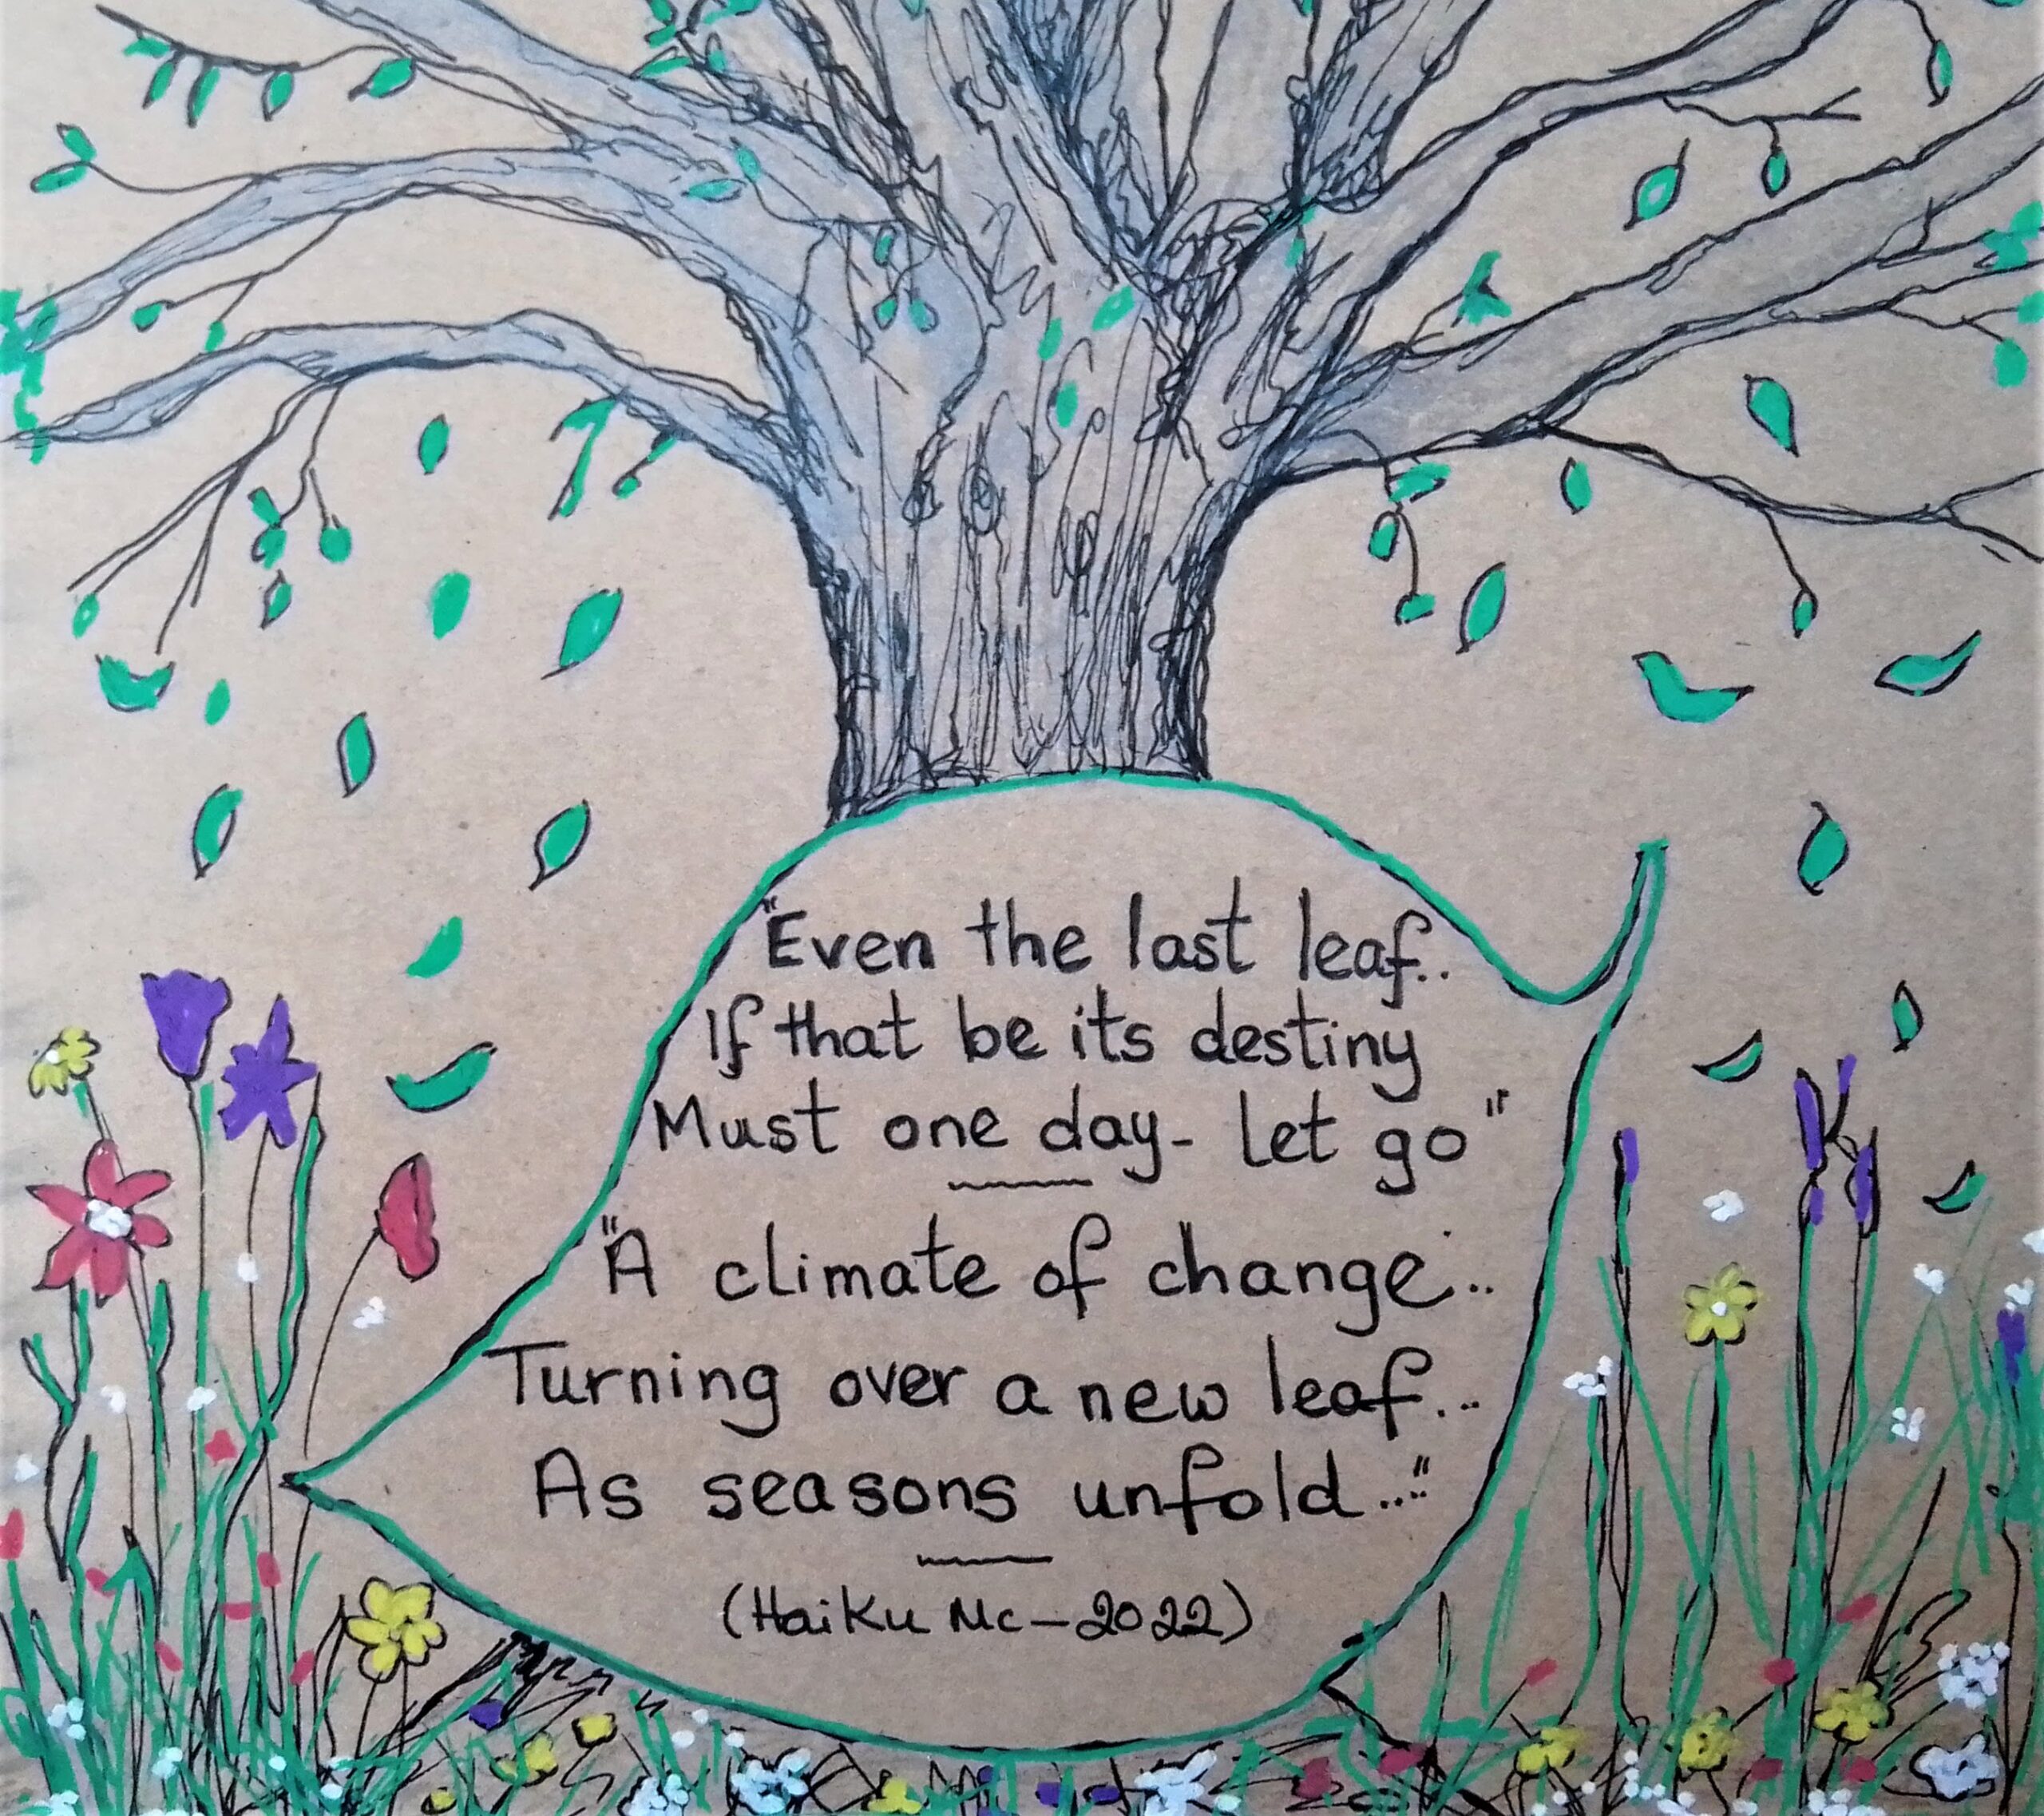 "Even the last leaf..
If that be its destiny
Must one day- let go"
"A climate of change...
Turning over a new leaf...
As seasons unfold..."
(HaiKu Mc-2022)